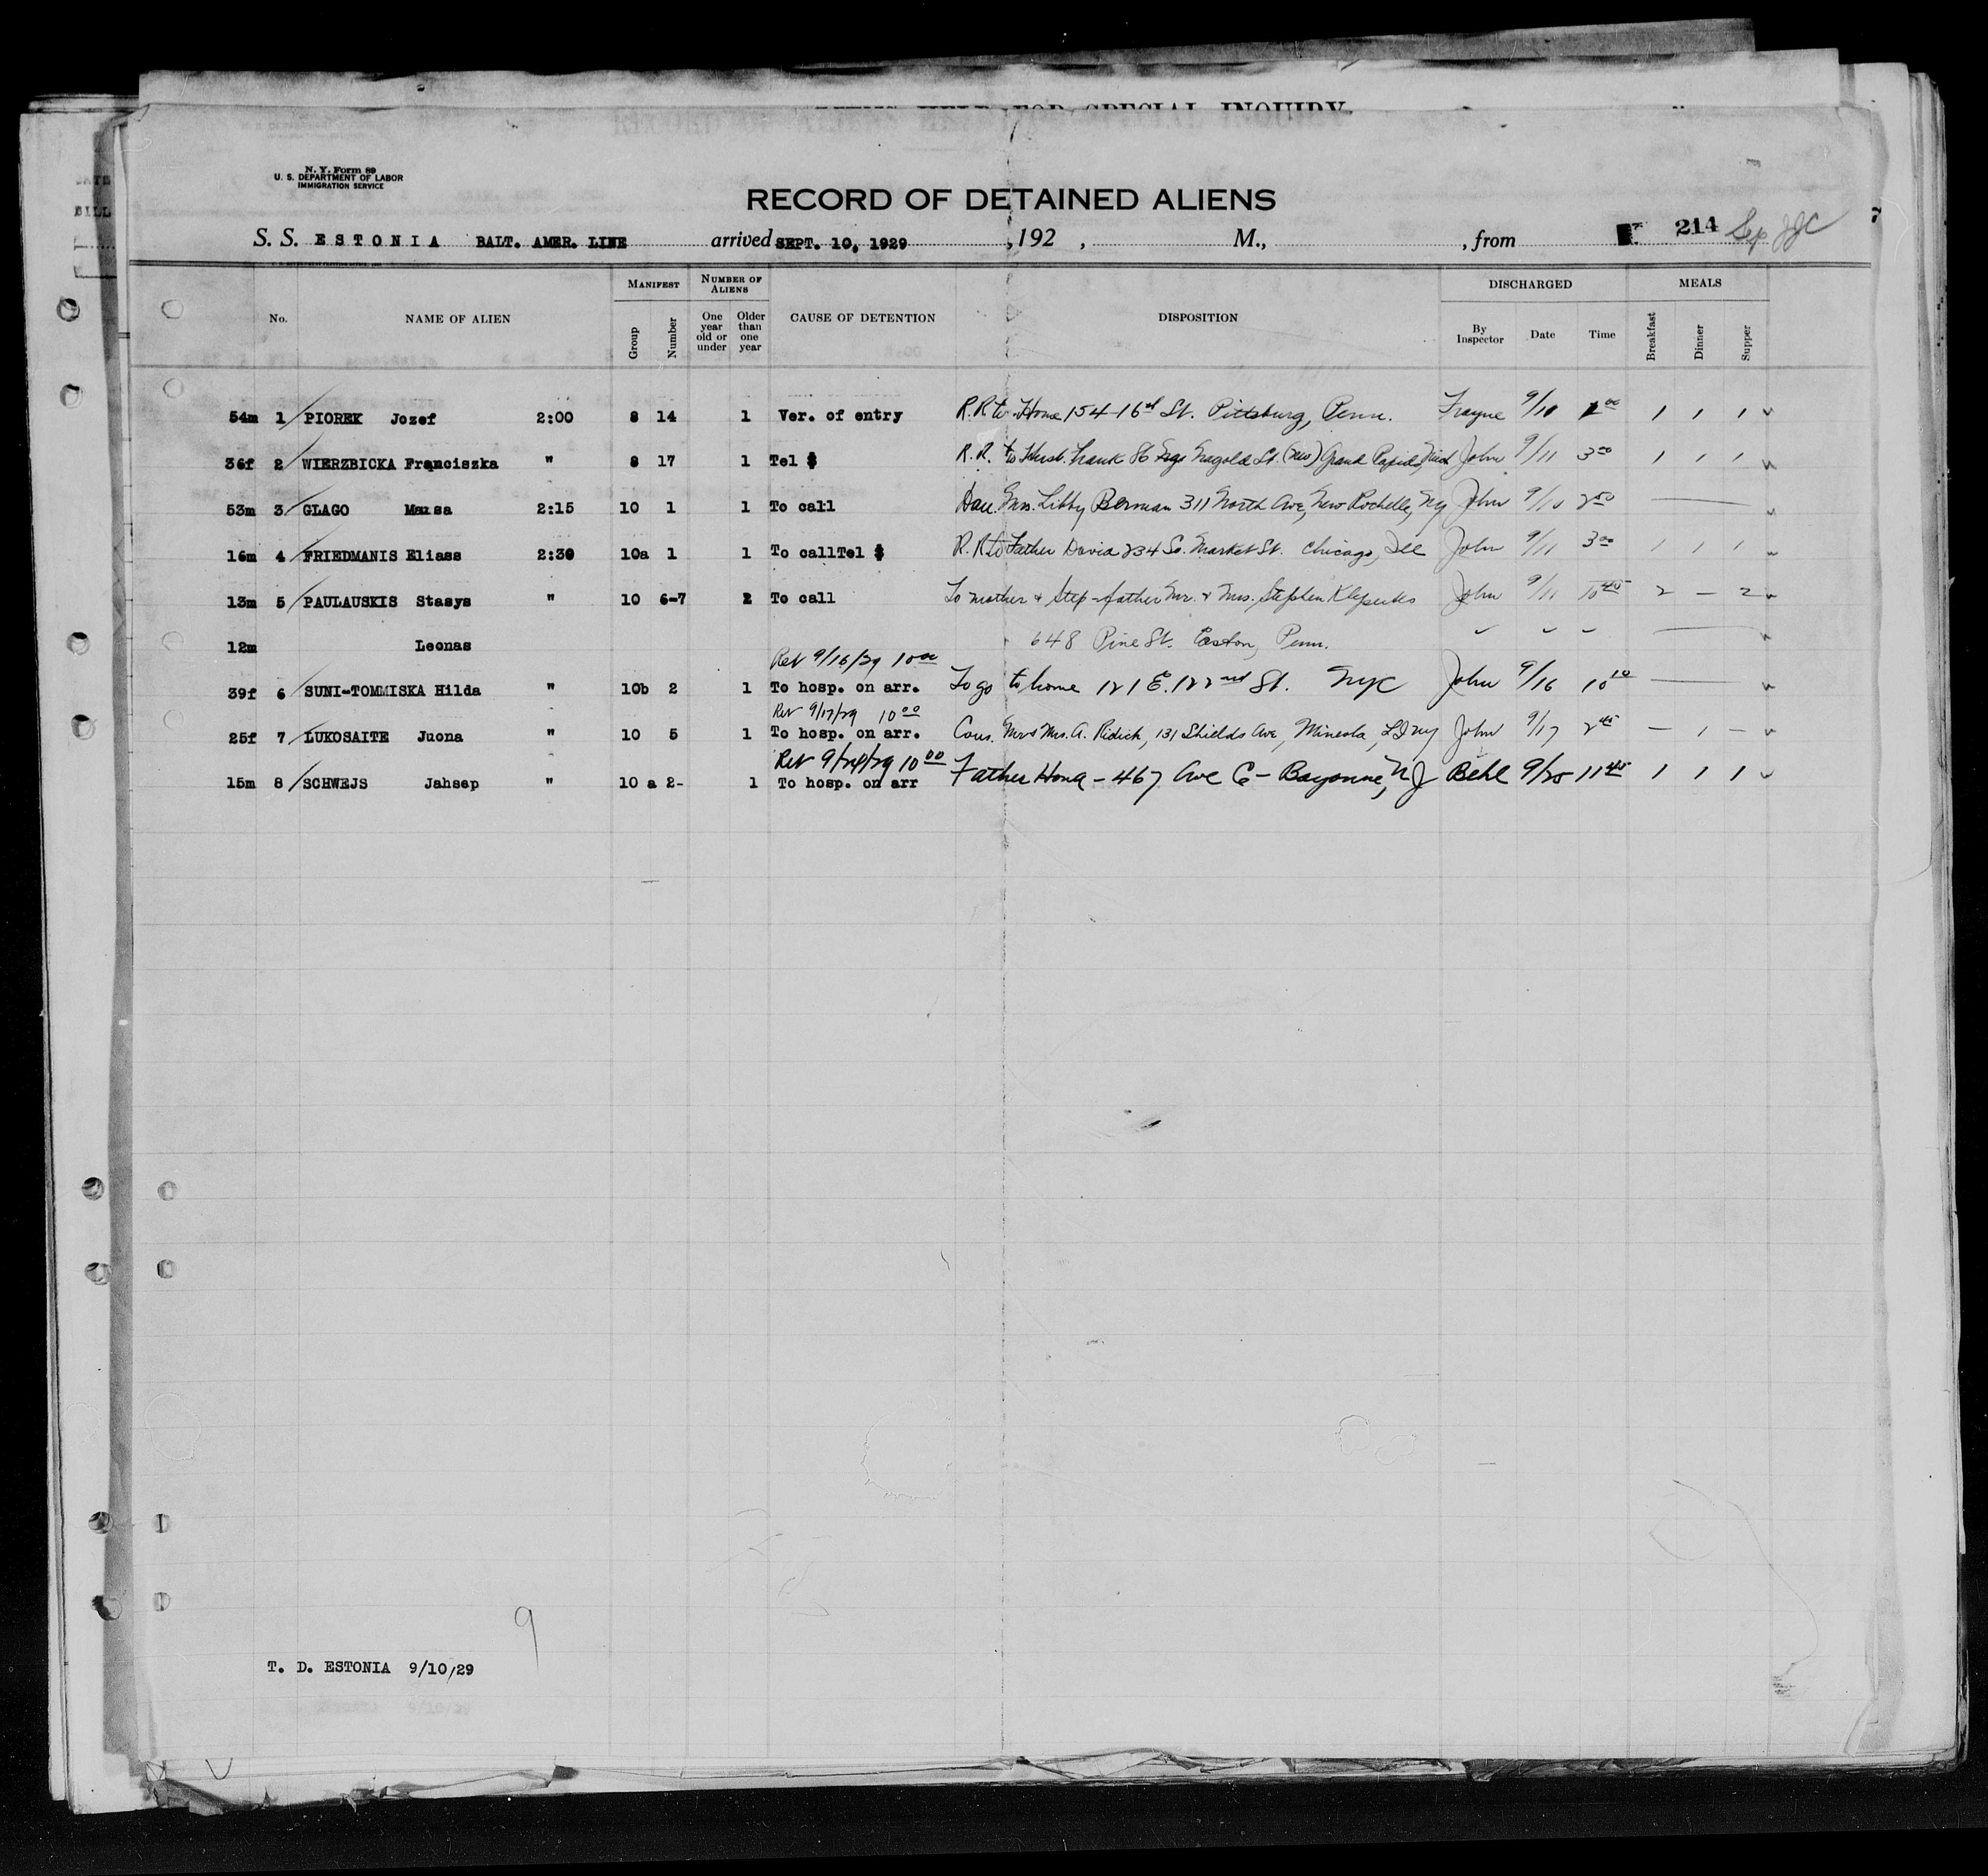 FOR SPECIAL INQUIRY
N. Y. Form 89
U. S. DEPARTMENT OF LABOR
IMMIGRATION SERVICE
RECORD OF DETAINED ALIENS
214
S. S. ESTONIA BALT. AMER. LINE arrived SEPT. 10, 1929, 192 , M., , from
No. NAME OF ALIEN MANIFEST Group Number NUMBER OF ALIENS One year old or under Older than one year CAUSE OF DETENTION DISPOSITION DISCHARGED By Inspector Date Time MEALS Breakfast Dinner Supper
54m 1 PIOREK Jozef 2:00 8 14 1 Ver. of entry R.R to Home 154-16th St. Pittsburg, Penn. Frayne 9/10 00 1 1 1
36f 2 WIERZBICKA Franciszka " 8 17 1 Tel $ R.R. to Husb. Frank St. (NW) Grand Rapids, Mich John 9/11 3 00 1 1 1
53m 3 GLAGO 2:15 10 1 1 To call Mrs. Libby Berman 311 North Ave, New Rochelle, Ny John 9/10 2 50 —
16m 4 FRIEDMANIS Eliass 2:30 10a 1 1 To call Tel $ R.R to Father David 234 So. Market St. Chicago, Ill John 9/11 3 00 1 1 1
13m 5 PAULAUSKIS Stasys " 10 6-7 2 To call To mother & Step-father Mr. & Mrs. Stephen John 9/11 10 45 2 — 2
12m Leonas 648 Pine St. Easton, Penn.
Ret 9/16/29 10 00
39f 6 SUNI-TOMMISKA Hilda " 10b 2 1 To hosp. on arr. To go to home 121 E. 122nd St. Nyc John 9/16 10 10 —
Ret 9/17/29 10 00
25f 7 LUKOSAITE Juona " 10 5 1 To hosp. on arr. Cous. Mr & Mrs. A. Ridick, 131 Shields Ave, Mineola, LI Ny John 9/17 2 45 — 1 —
Ret 9/24/29 10 00
15m 8 SCHWEJS Jahsep " 10 a 2- 1 To hosp. on arr Father Hona - 467 Ave C - Bayonne, NJ Behl 9/25 11 45 1 1 1
9
T. D. ESTONIA 9/10/29